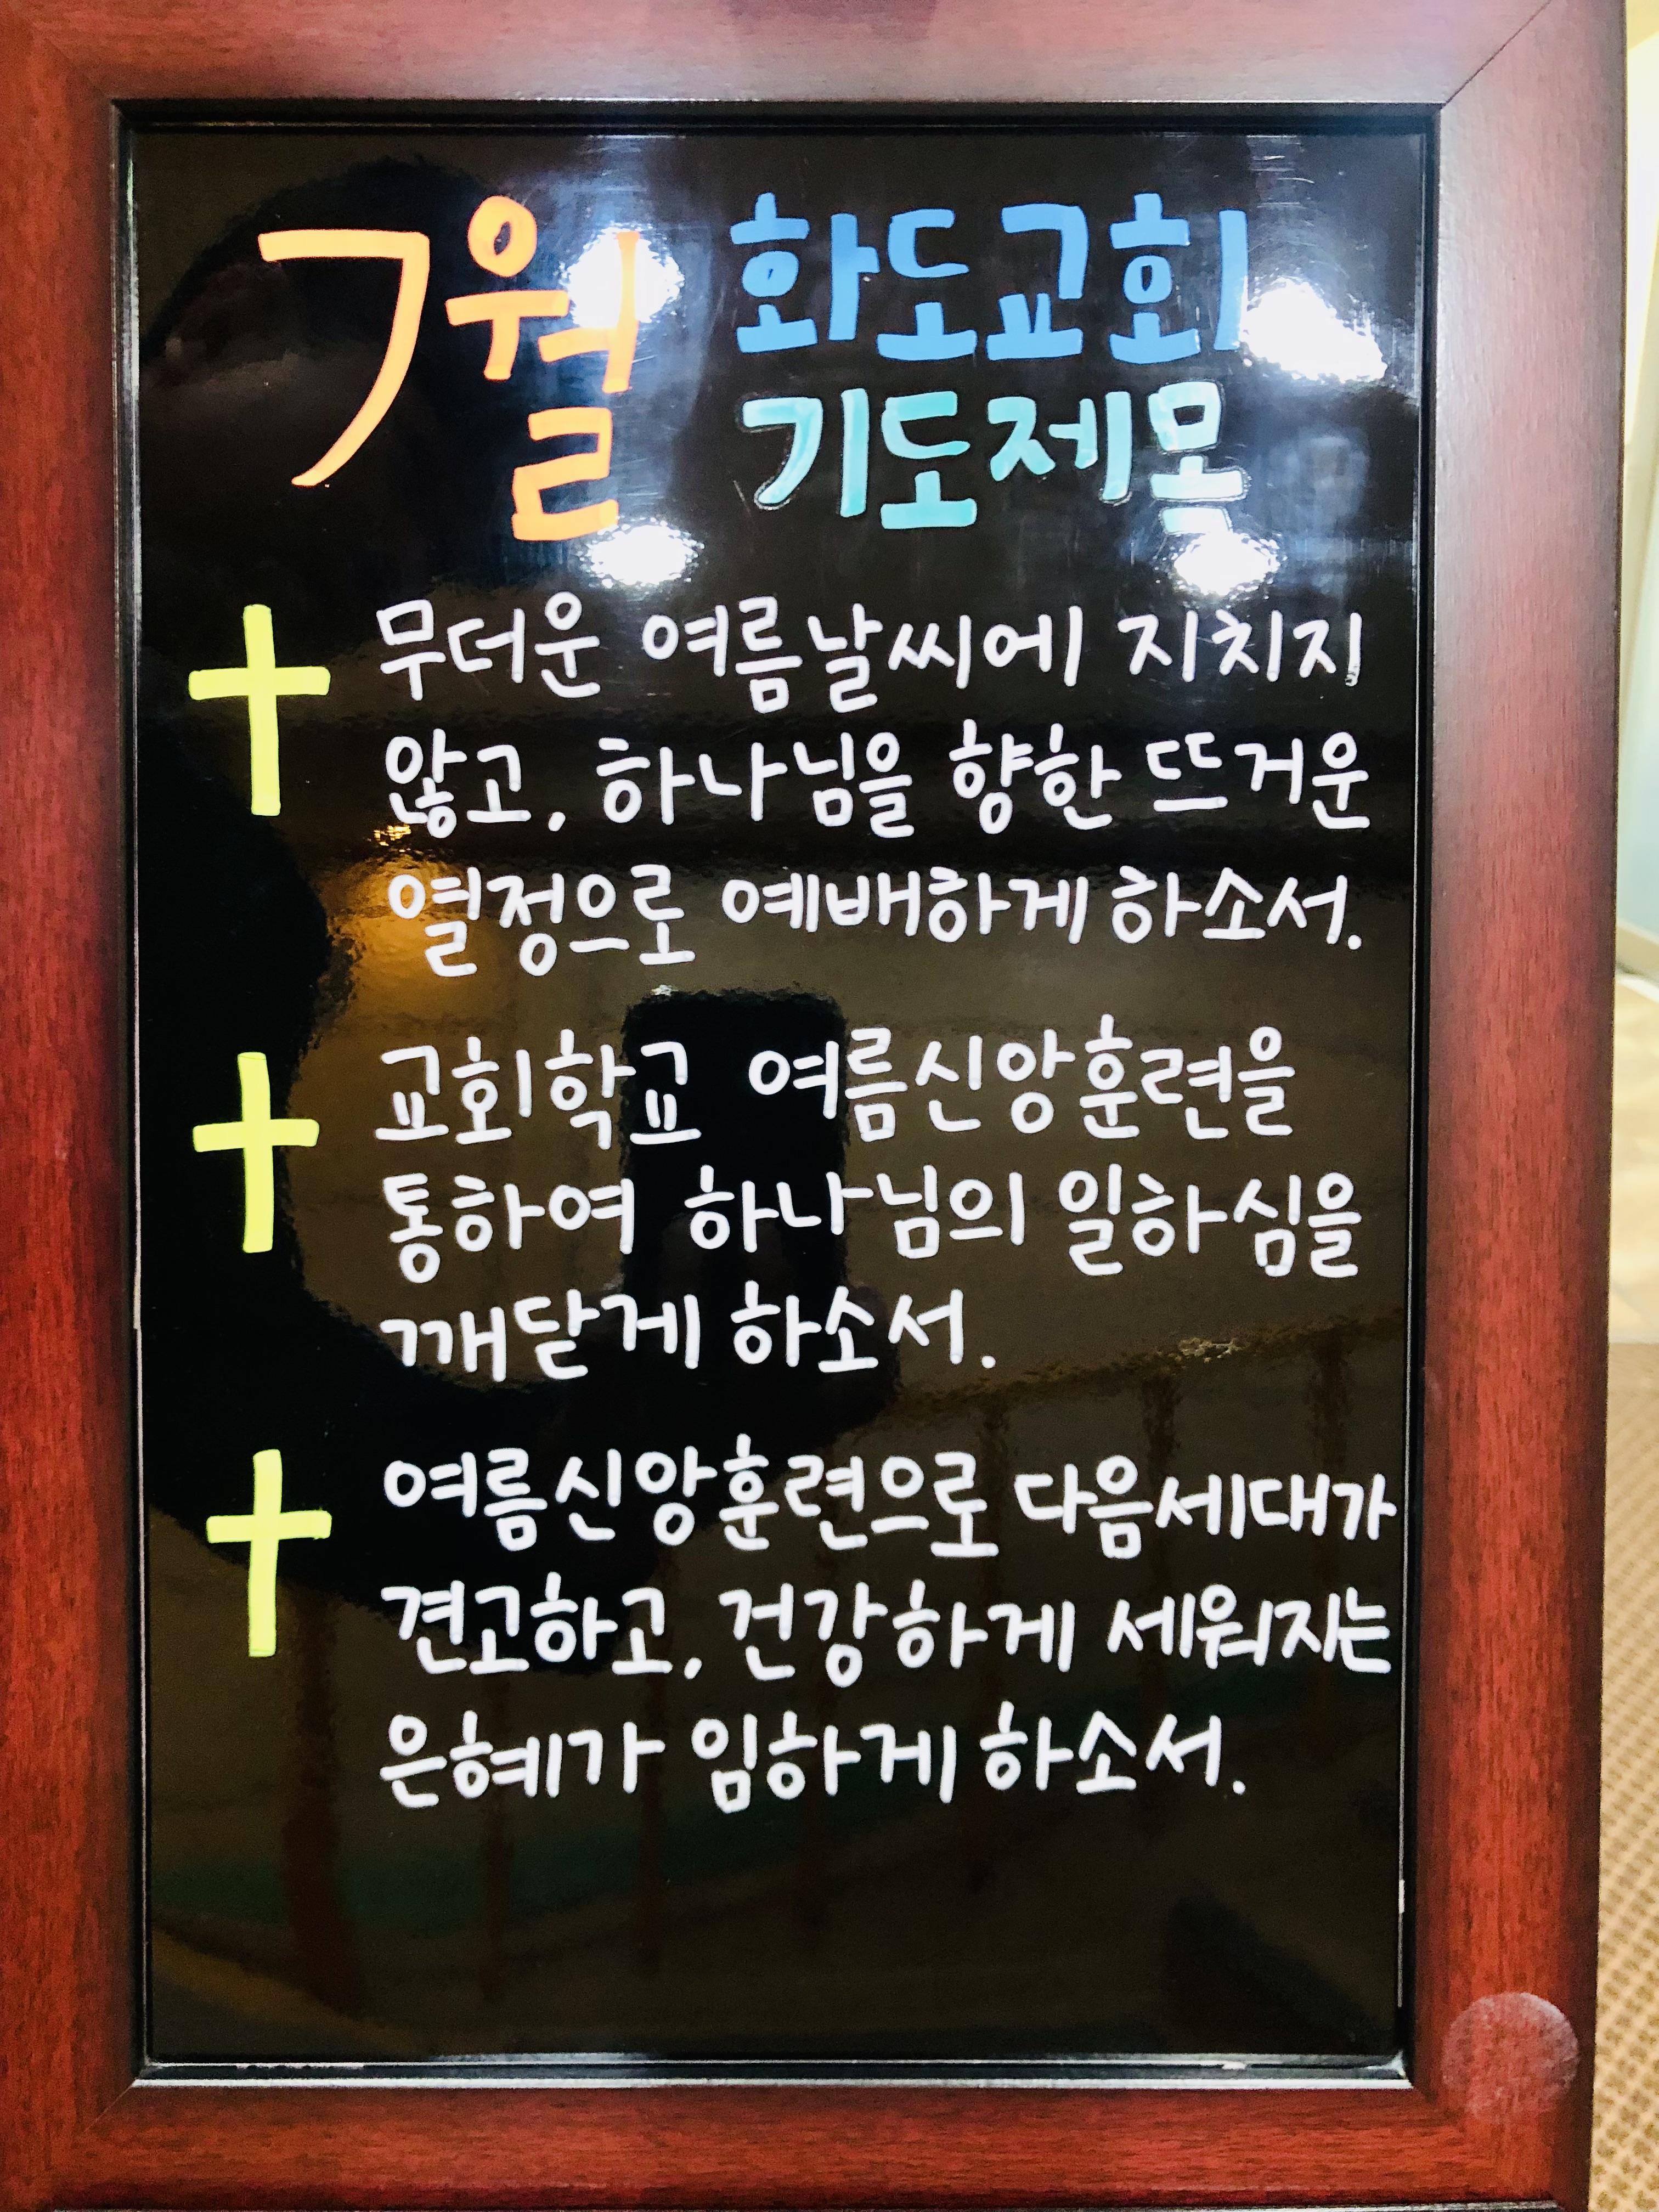 7월 화도교회
기도제목
무더운 여름날씨에 지치지
않고, 하나님을 향한 뜨거운
열정으로 예배하게 하소서.
교회학교 여름신앙훈련을
통하여 하나님의 일하심을
깨닫게 하소서.
여름신앙훈련으로 다음세대가
견고하고, 건강하게 세워지는
은혜가 임하게 하소서.